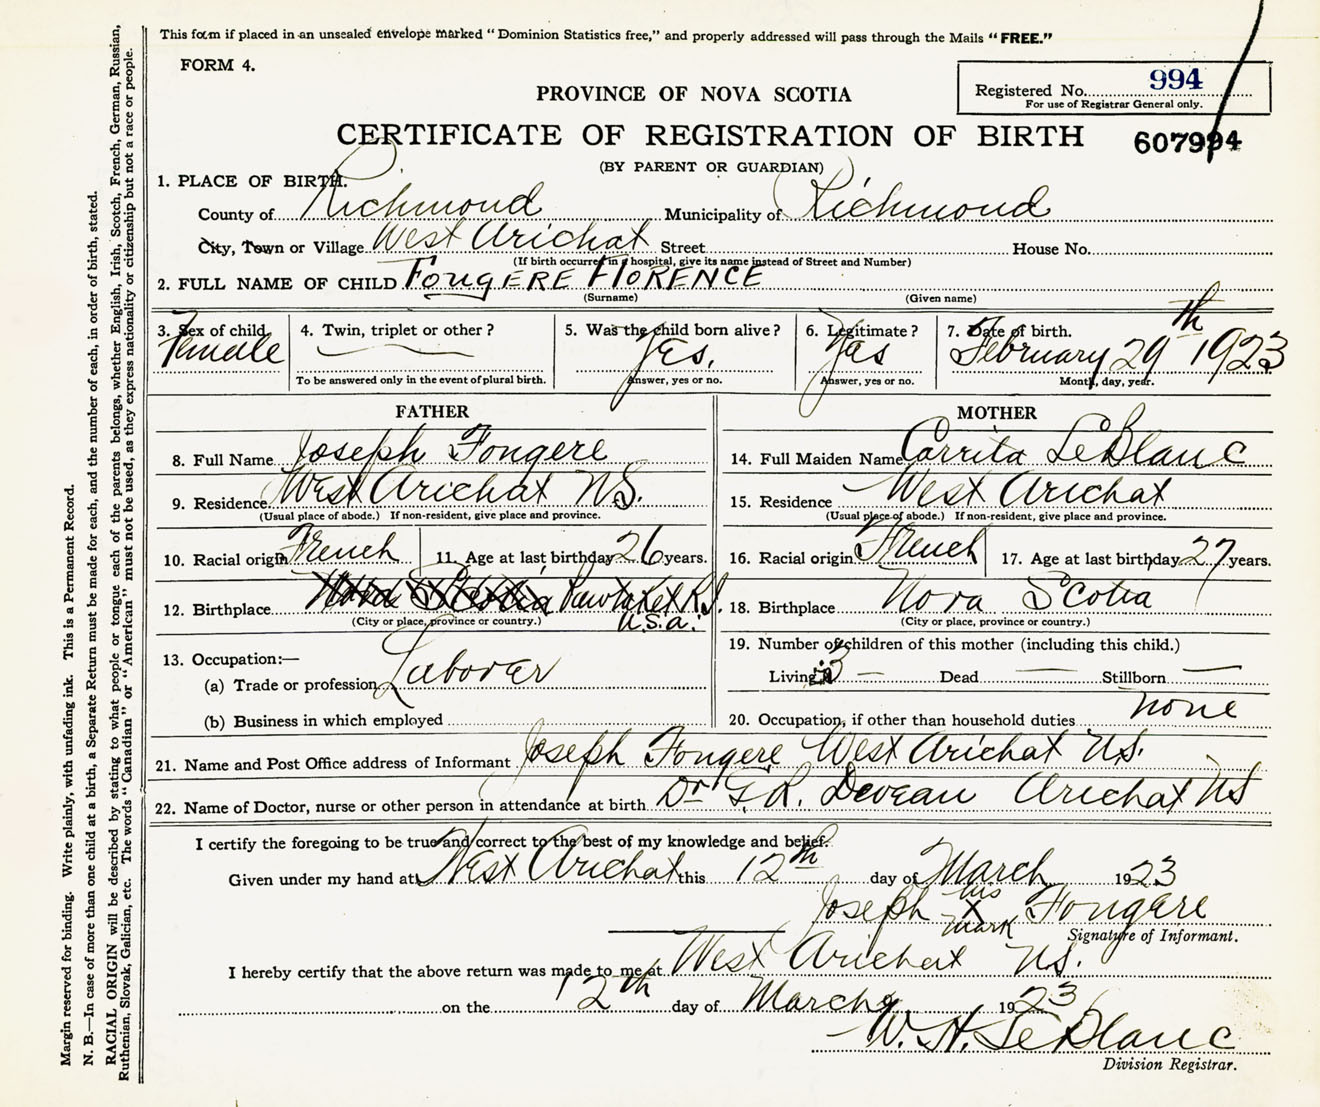 This form if placed in an unsealed envelope marked "Dominion Statistics free," and properly addressed will pass through the Mails "FREE."
FORM 4.
Registered No. 994
For use of Registrar General only.
PROVINCE OF NOVA SCOTIA
CERTIFICATE OF REGISTRATION OF BIRTH
607994
(BY PARENT OR GUARDIAN)
1. PLACE OF BIRTH.
County of Richmond Municipality of Richmond
City, Town or Village West Arichat Street House No.
(If birth occurred in a hospital, give its name instead of Street and Number)
2. FULL NAME OF CHILD FougERE FlORENCE
(Surname) (Given name)
3. Sex of child Female
4. Twin, triplet or other?
To be answered only in the event of plural birth.
5. Was the child born alive? yes.
Answer, yes or no.
6. Legitimate? Yas
Answer, yes or no.
7. Date of birth. February 29th 1923
Month, day, year.
FATHER
8. Full Name Joseph Fongere
9. Residence West Arichat N.S.
(Usual place of abode.) If non-resident, give place and province.
10. Racial origin French 11. Age at last birthday 26 years.
12. Birthplace Nova Scotia Pawtaket R.I. U.S.a.
(City or place, province or country.)
13. Occupation:—
(a) Trade or profession Laborar
(b) Business in which employed
MOTHER
14. Full Maiden Name Carrita LeBlanc
15. Residence West Arichat
(Usual place of abode.) If non-resident, give place and province.
16. Racial origin French 17. Age at last birthday 27 years.
18. Birthplace Nova Scotia
(City or place, province or country.)
19. Number of children of this mother (including this child.)
Living 3 — Dead — Stillborn —
20. Occupation, if other than household duties none
21. Name and Post Office address of Informant Joseph Fongere West Arichat N.S.
22. Name of Doctor, nurse or other person in attendance at birth Dr G.R. Deveau Arichat NS
I certify the foregoing to be true and correct to the best of my knowledge and belief.
Given under my hand at West Arichat this 12th day of March 1923
Joseph his X mark Fongere
Signature of Informant.
I hereby certify that the above return was made to me at West Arichat N.S.
on the 12th day of March 1923
W. H. LeBlanc
Division Registrar.
Margin reserved for binding. Write plainly, with unfading ink. This is a Permanent Record.
N. B.—In case of more than one child at a birth, a Separate Return must be made for each, and the number of each, in order of birth, stated.
RACIAL ORIGIN will be described by stating to what people or tongue each of the parents belongs, whether English, Irish, Scotch, French, German, Russian,
Ruthenian, Slovak, Galician, etc. The words "Canadian" or "American" must not be used, as they express nationality or citizenship but not a race or people.